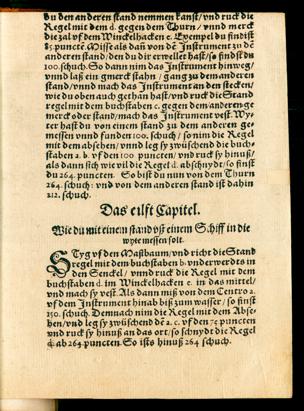 du den anderen stand nemmen kanst/vnnd ruck die
Regel mit dem d. gegen dem Thurn/vnnd merck
die zal vff dem Winckelhacken c. Exempel du findist
85. puncten. Misse als dañ von dē Instrument zu dē
anderen stand/den du dir erwellet hast/so findst du
100. schuch. So dann nim das Instrument hinweg/
vnnd laß ein gmerck stahn/gang zu dem anderen
stand/vnnd mach das Instrument an den stecken/
wie du oben auch gethan hast/vnd ruck die Stand
regel mit dem buchstaben c. gegen dem anderen ge
merck oder stand/mach das Instrument vest. Wy
ter hast du von einem stand zu dem anderen ge-
messen vnnd funden 100. schuch/so nim die Regel
mit dem absehen/vnnd leg sy zwüschend die buch-
staben a. b. vff den 100 puncten/vnd ruck sy hinuß/
als dann sich wie vil die Regel d. abschnydt/so finst
du 264. puncten. So bist du nun von dem Thurn
264. schuch: vnd von dem anderen stand ist dahin
212. schuch.
Das eilft Capitel.
Wie du mit einem stand vß einem Schiff in die
wyte messen solt.
STyg vf den Mastbaum/vnd richt die Stand
regel mit den buchstaben b. vnder werdts in
den Senckel/vnnd ruck die Regel mit dem
buchstaben d. im Winckelhacken c. in das mittel/
vnd mach sy vest. Als dann miß von dem Centro a.
vf dem Instrument hinab biß zum wasser/so finst
150. schuch. Demnach nim die Regel mit dem Abse-
hen/vnd leg sy zwüschend dē a. c. vf den 75 puncten
vnd ruck sy hinuß an das ort/so schnydt die Regel
d. ab 264. puncten. So ists hinuß 264 schuch.